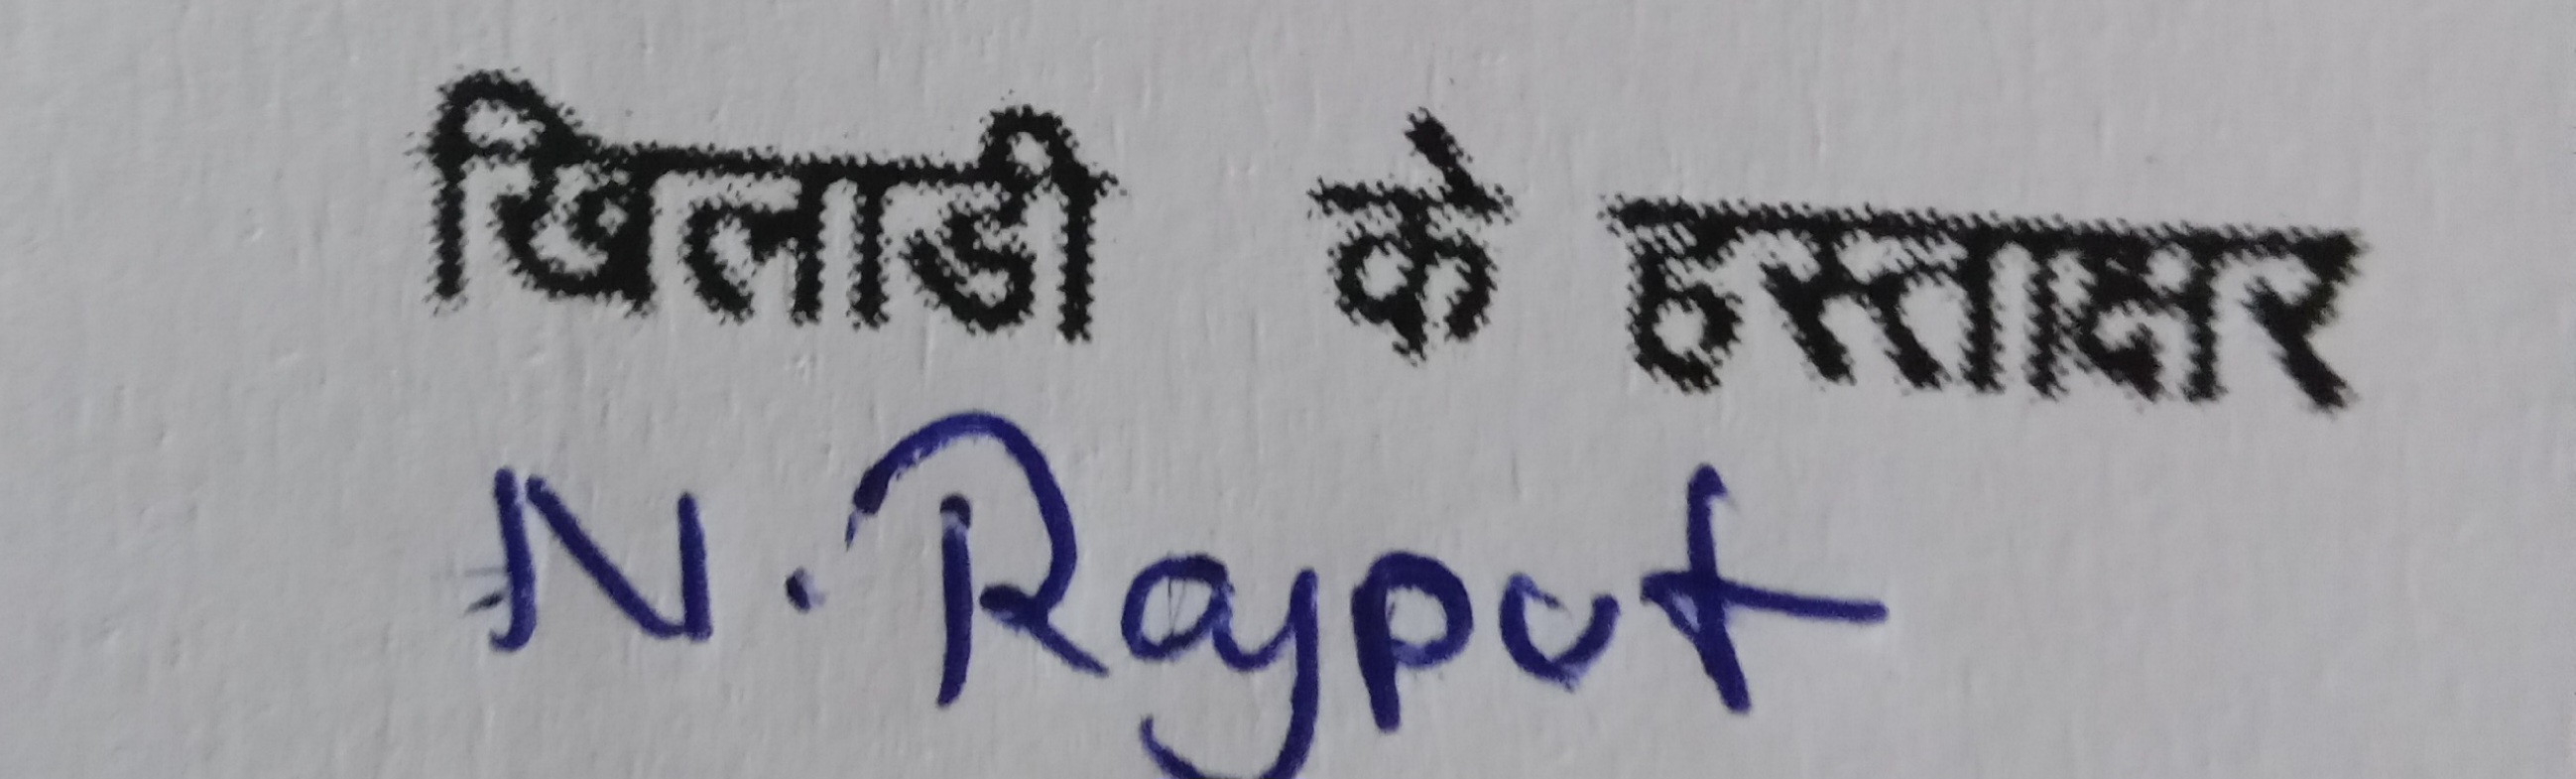 खिलाडी के हस्ताक्षर
N. Rajput